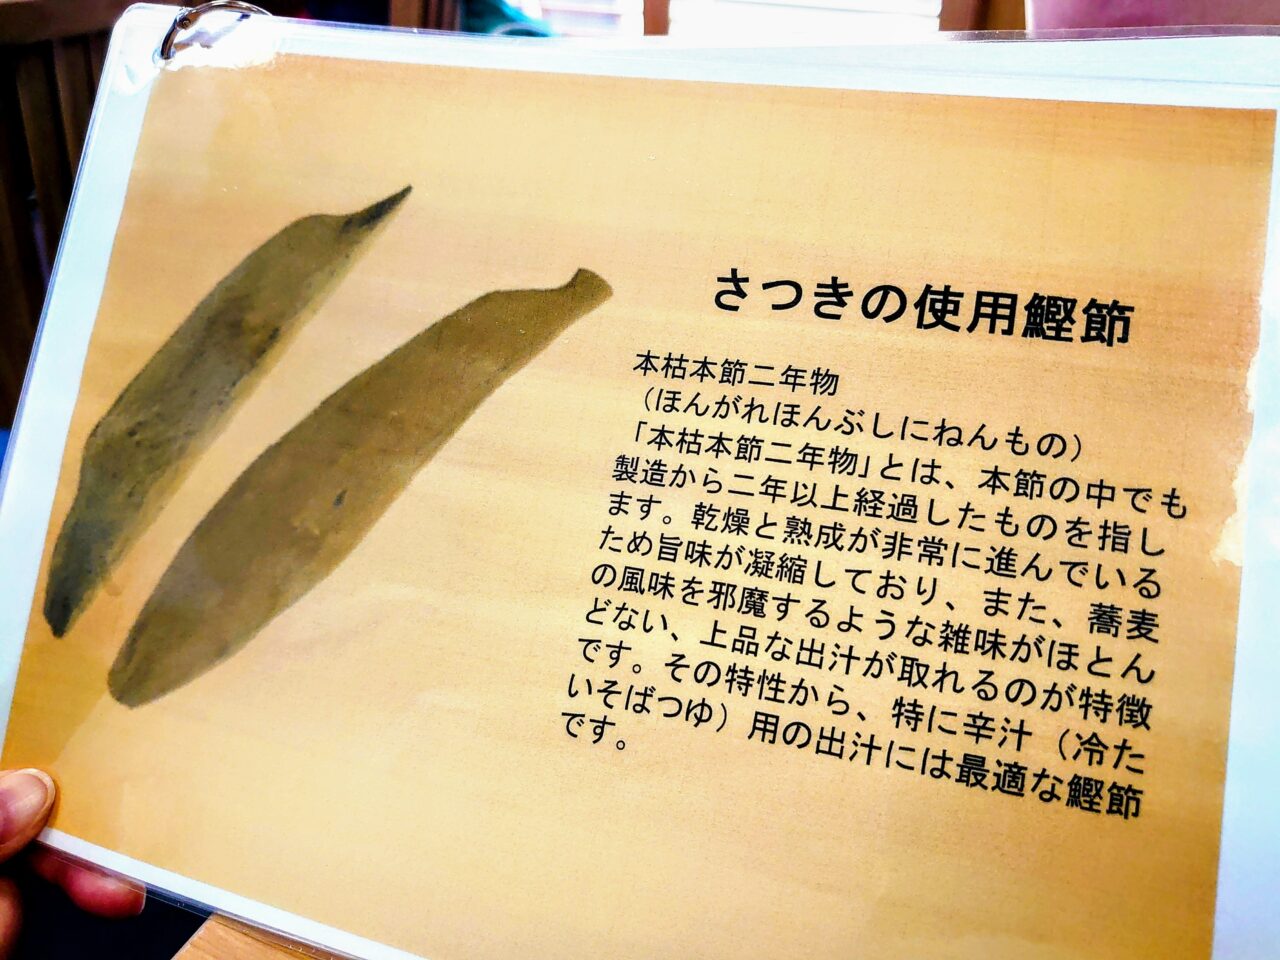 さつきの使用鰹節
本枯本節二年物
（ほんがれほんぶしにねんもの）
「本枯本節二年物」とは、本節の中でも
製造から二年以上経過したものを指し
ます。乾燥と熟成が非常に進んでいる
ため旨味が凝縮しており、また、蕎麦
の風味を邪魔するような雑味がほとん
どない、上品な出汁が取れるのが特徴
です。その特性から、特に辛汁（冷た
いそばつゆ）用の出汁には最適な鰹節
です。